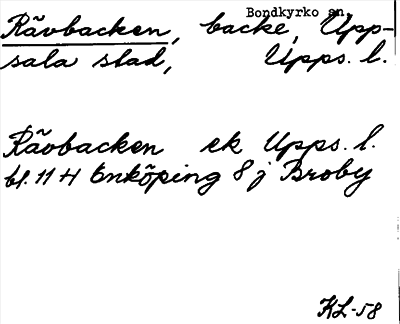 Bondkyrko sn.
Rävbacken, backe, Upp-
sala stad, Upps. l.
Rävbacken ek Upps. l.
bl. 11 H Enköping 8 j Broby
KL-58